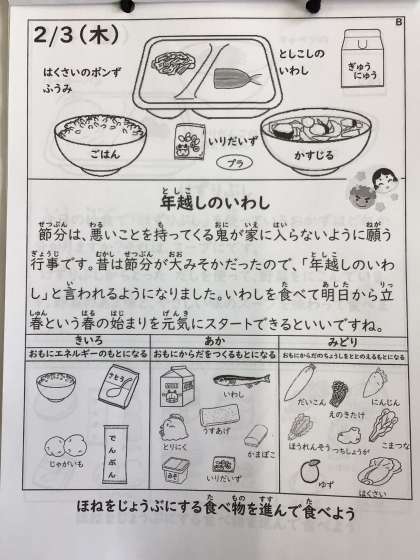 B
2/3(木)
はくさいのポンず
ふうみ
としこしの
いわし
ぎゅう
にゅう
ごはん
いりだいず
プラ
かすじる
年越しのいわし
節分は、悪いことを持ってくる鬼が家に入らないように願う
行事です。昔は節分が大みそかだったので、「年越しのいわ
し」と言われるようになりました。いわしを食べて明日から立
春という春の始まりを元気にスタートできるといいですね。
きいろ
おもにエネルギーのもとになる
あか
おもにからだをつくるもとになる
みどり
おもにからだのちょうしをととのえるもとになる
さとう
じゃがいも
でんぷん
いわし
とりにく
うすあげ
かまぼこ
いりだいず
だいこん
えのきたけ
にんじん
ほうれんそう
つちしょうが
こまつな
ゆず
はくさい
ほねをじょうぶにする食べ物を進んで食べよう